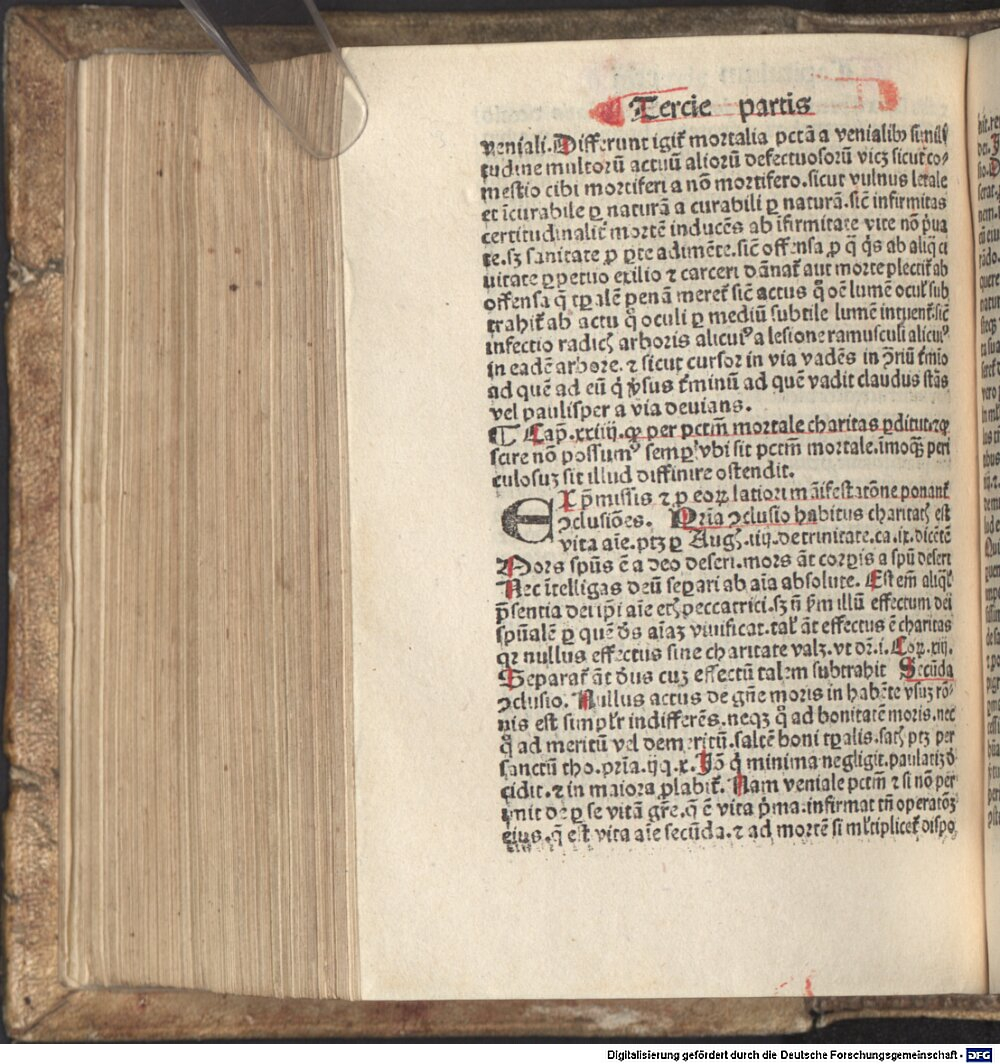 Tercie partis
veniali. Differunt igit̃ mortalia pctā a venialibꝫ simili
tudine multorū actuū aliorū defectuosorū vicꝫ sicut co⸗
mestio cibi mortiferi a nō mortifero. sicut vulnus letale
et ĩcurabile ꝑ naturā a curabili ꝑ naturā. sic̃ infirmitas
certitudinalit̃ mortē inducēs ab ĩfirmitate vite nō p̃ua
te. sꝫ sanitate ꝓ ꝑte adimēte. sic̃ offensa ꝓ q̄ q̇s ab aliq̄ ci
uitate ꝑpetuo exilio ⁊ carceri dānat̃ aut morte plectit̃ ab
offensa q̄ tꝑalē penā meret̃ sic̃ actus q̇ oē lumē oculꝭ sub
trahit̃ ab actu q̇ oculi ꝑ mediū subtile lumē intuent̃. sic̃
infectio radicꝭ arboris alicuiꝰ a lesione ramusculi alicuiꝰ
in eadē arbore. ⁊ sicut cursor in via vadēs in ꝯ̃riū t̃mīo
ad quē ad eū q̇ ṽsus t̃minū ad quē vadit claudus stās
vel paulisper a via deuians.
¶ Cap̃. xxiiij. ꝙ per pctm̄ mortale charitas ꝑditur. ⁊ ꝙ
scire nō possumꝰ semꝑ vbi sit pctm̄ mortale. ĩmoqꝫ peri
culosuꝫ sit illud diffinire ostendit.
EX p̄missis ⁊ ꝓ eoꝝ latiori māifestatōne ponant̃
ꝯclusiōes. Pria ꝯclusio habitus charitatꝭ est
vita aīe. ptꝫ ꝑ Augꝭ. iiij. de trinitate. ca. ix. dicētē
Mors spūs ē a deo deseri. mors āt corpis a spū deseri
Nec ĩtelligas deū separi ab aīa absolute. Est em̄ aliql̓
p̄sentia dei ip̄i aīe etꝭ peccatrici. sꝫ ñ ẜm illū effectum dei
spūalē ꝑ quē dꝰs aīaꝫ viuificat. talꝭ āt effectus ē charitas
qꝛ nullus effectus sine charitate valꝫ. vt dr̄. i. Coꝝ. xiij.
Separat̃ āt dꝰs cuꝫ effectū talem subtrahit Secūda
ꝯclusio. Nullus actus de gñe moris in habēte vsuꝫ rō⸗
nis est simpl̓r indifferēs. neqꝫ q̇ ad bonitatē moris. nec
q̇ ad meritū vel demeritū. saltē boni tꝑalis. satꝭ ptꝫ per
sanctū tho. pria. ijq. x. Iō q̇ minima negligit. paulatiꝫ d̓
cidit. ⁊ in maiora ꝓlabit̃. Nam veniale pctm̄ ⁊ si nō per
imit de ꝑ se vitā gr̄e. q̄ ē vita p̓ma. infirmat tn̄ operatōꝫ
eius. q̄ est vita aīe secūda. ⁊ ad mortē si ml̓tiplicet̃ dispo
Digitalisierung gefördert durch die Deutsche Forschungsgemeinschaft - DFG